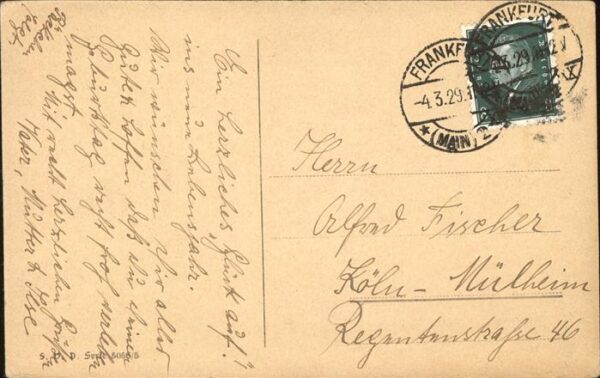 Ein herzliches Glück auf!
ins neue Lebensjahr.
Wir wünschen Dir alles
Guten hoffen daß du deinen
Geburtstag recht froh verleben
magst.
Mit recht herzlichen Grüßen
Vater, Mutter & Ilse
FRANKFURT
(MAIN)
-4.3.29.
FRANKFURT
3.29
Herrn
Alfred Fischer
Köln-Mülheim
Regentenstraße 46
Serie 5056/5